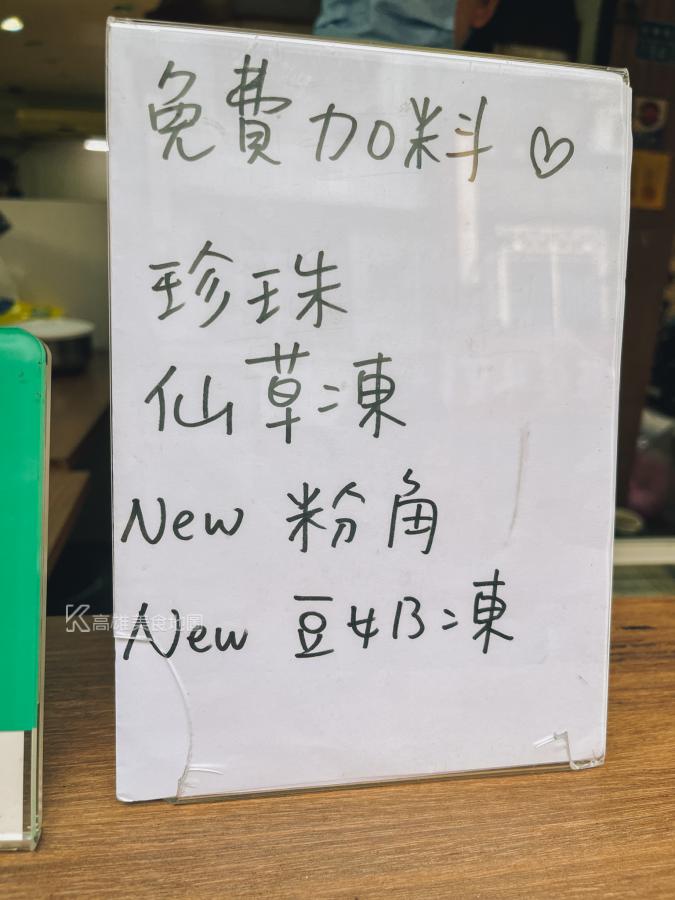 免費加料♡
珍珠
仙草凍
New 粉角
New 豆奶凍
高雄美食地圖